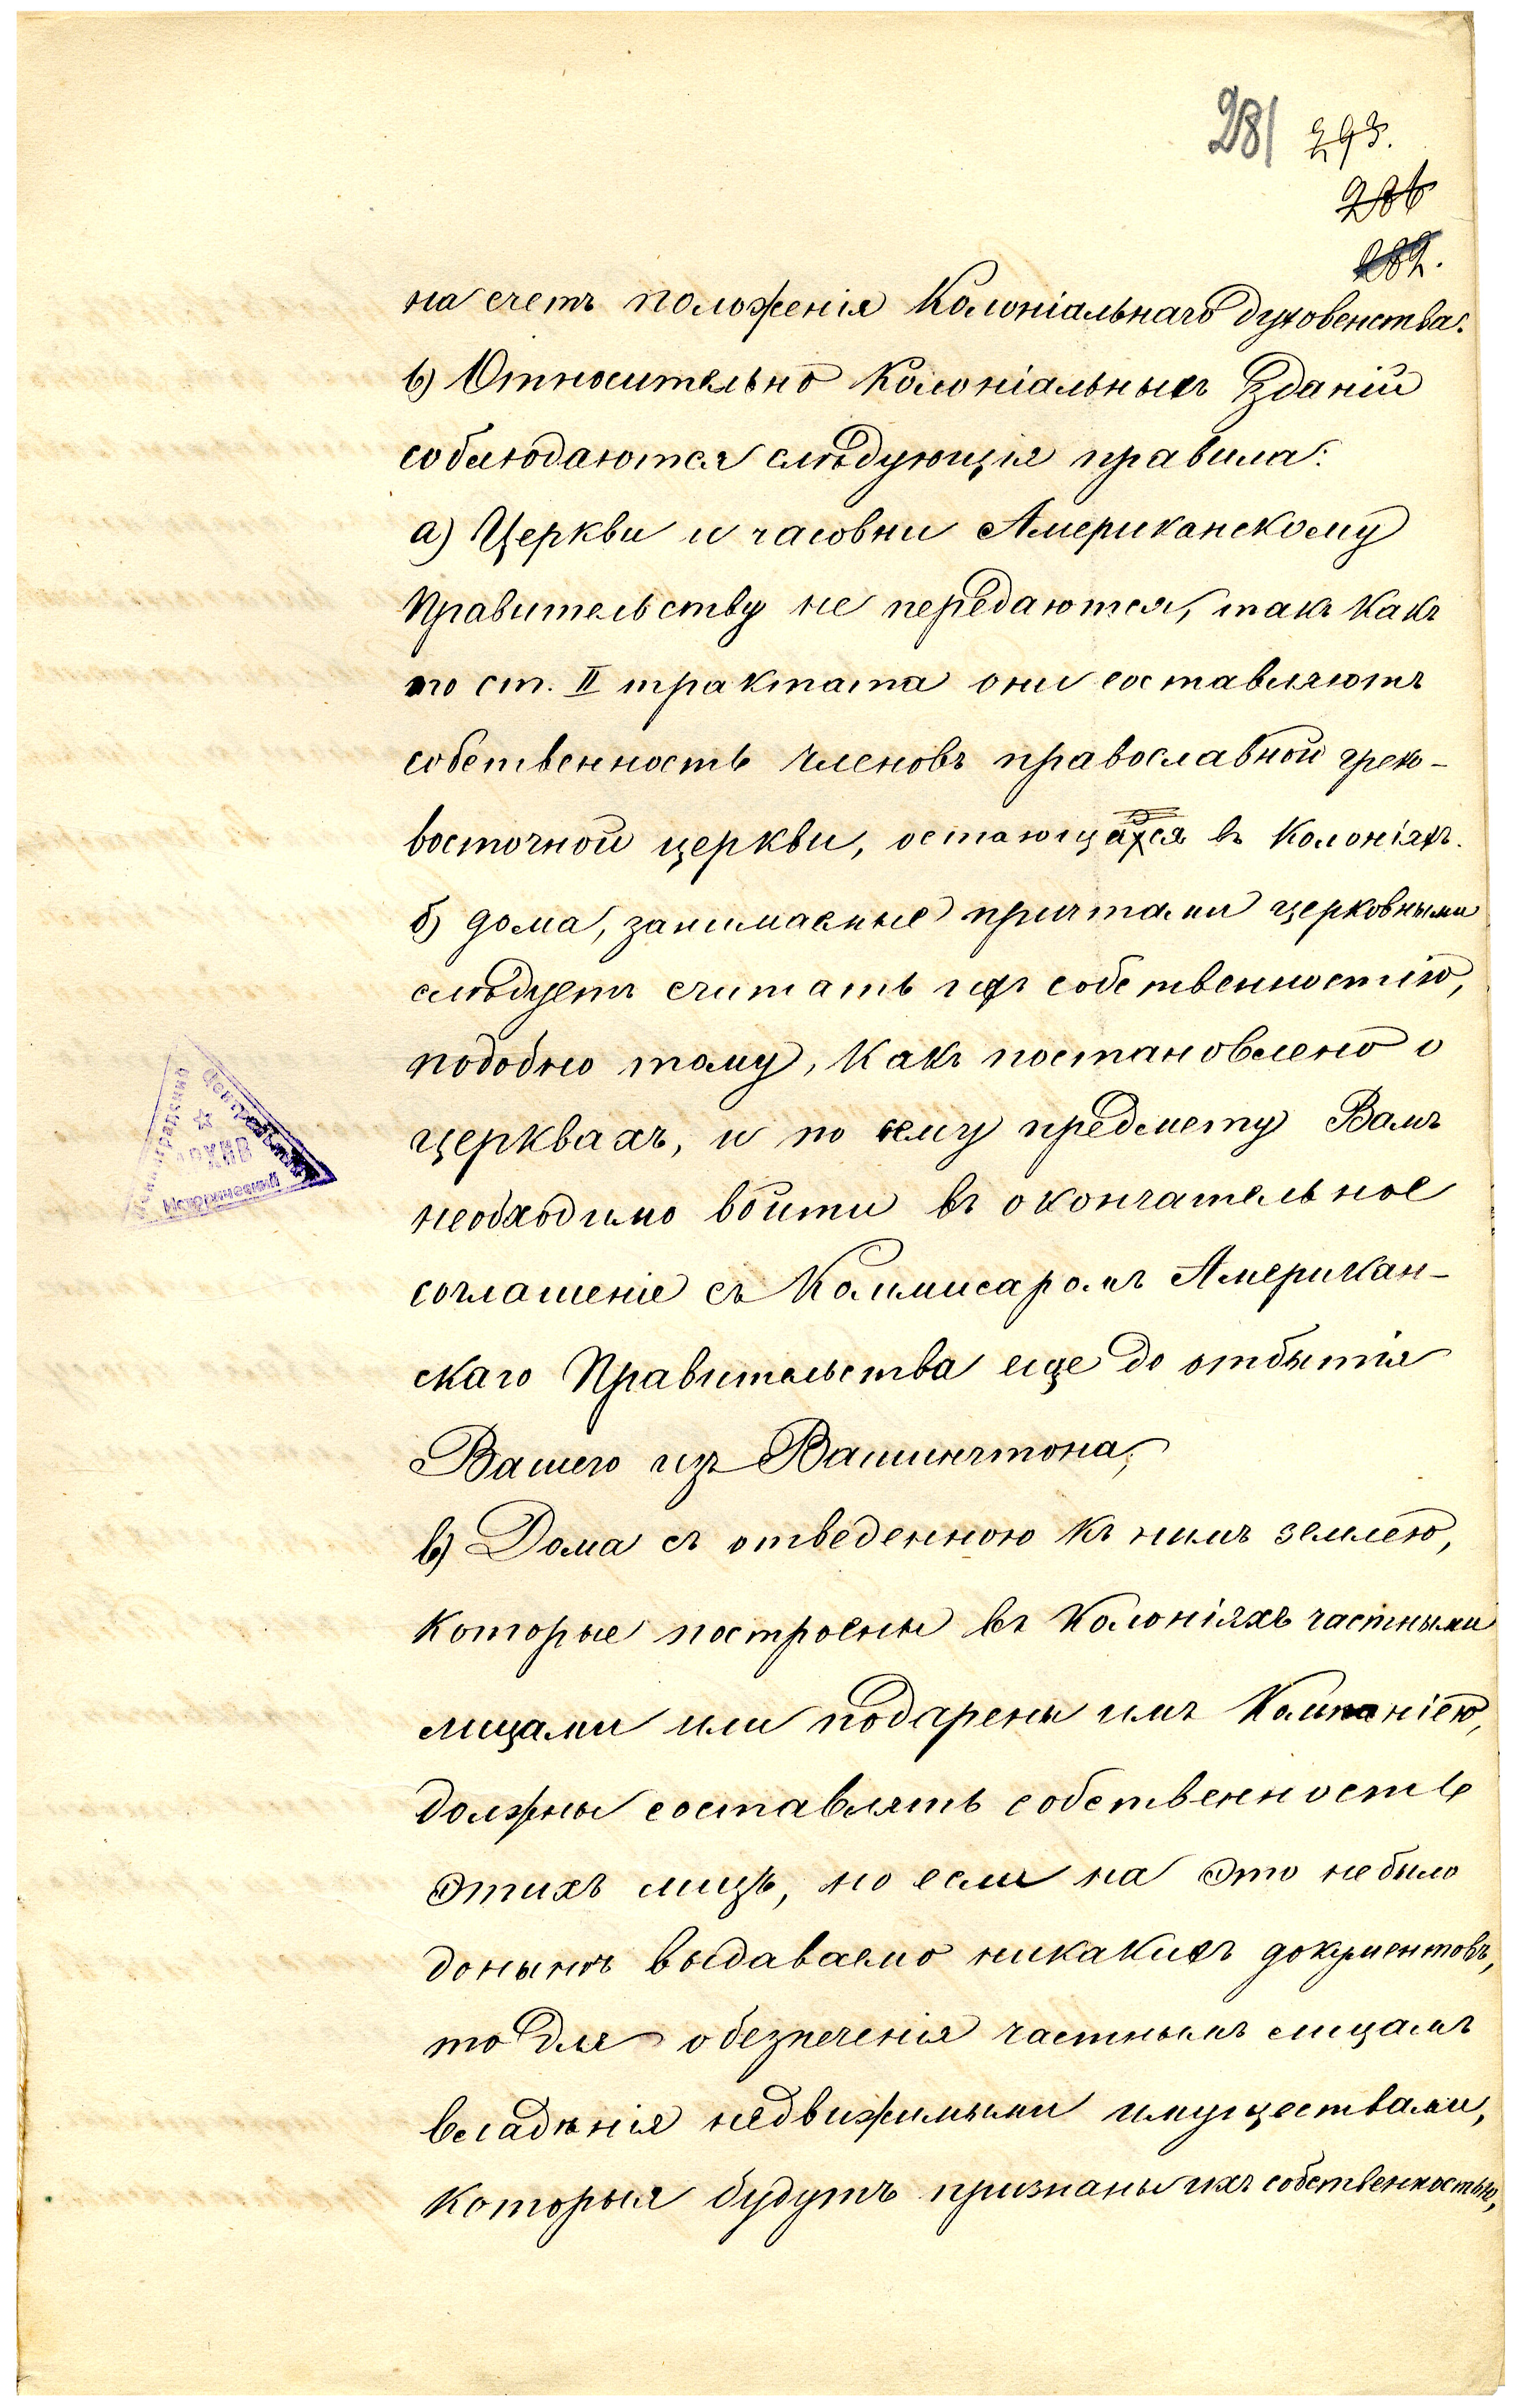 281 293.
286
282.
на счетъ положенія Колоніальнаго духовенства.
в) Относительно Колоніальныхъ Зданій
соблюдаются слѣдующія правила:
а) Церкви и часовни Американскому
Правительству не передаются, такъ какъ
по ст. II трактата они составляютъ
собственность членовъ православной греко-
восточной церкви, остающихся въ Колоніяхъ.
б) дома, занимаемые причтами церковными
слѣдуетъ считать ихъ собственностію,
подобно тому, какъ постановлено о
церквахъ, и по сему предмету Вамъ
необходимо войти въ окончательное
соглашеніе съ Коммисаромъ Американ-
скаго Правительства еще до отбытія
Вашего изъ Вашингтона;
в) Дома съ отведенною къ нимъ землею,
которые построены въ Колоніяхъ частными
лицами или подарены имъ Компаніею,
должны составлять собственность
этихъ лицъ, но если на это не было
донынѣ выдаваемо никакихъ документовъ,
то для обезпеченія частнымъ лицамъ
владѣнія недвижимыми имуществами,
которыя будутъ признаны ихъ собственностью,
Центральный
АРХИВ
Исторический